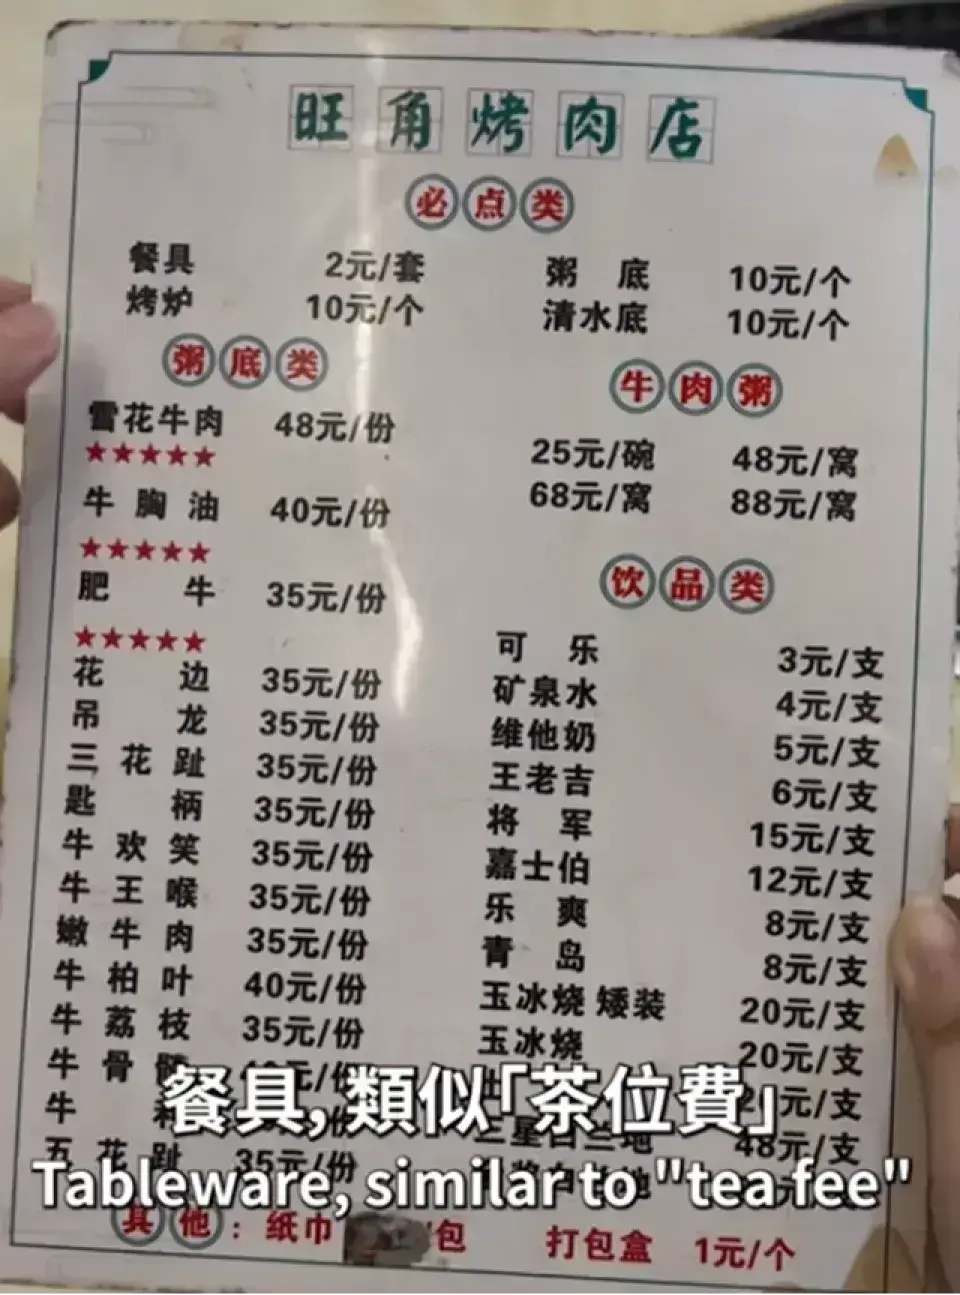 旺角烤肉店
必点类
餐具 2元/套 粥底 10元/个
烤炉 10元/个 清水底 10元/个
粥底类
雪花牛肉 48元/份
★★★★★
牛胸油 40元/份
★★★★★
肥牛 35元/份
★★★★★
花边 35元/份
吊龙 35元/份
三花趾 35元/份
匙柄 35元/份
牛欢笑 35元/份
牛王喉 35元/份
嫩牛肉 35元/份
牛柏叶 40元/份
牛荔枝 35元/份
牛骨
牛
五花趾 35元/份
牛肉粥
25元/碗 48元/窝
68元/窝 88元/窝
饮品类
可乐 3元/支
矿泉水 4元/支
维他奶 5元/支
王老吉 6元/支
将军 15元/支
嘉士伯 12元/支
乐爽 8元/支
青岛 8元/支
玉冰烧 矮装 20元/支
玉冰烧 20元/支
元/支
三星白兰地 48元/支
其他：纸巾 /包 打包盒 1元/个
餐具,類似「茶位費」
Tableware, similar to "tea fee"